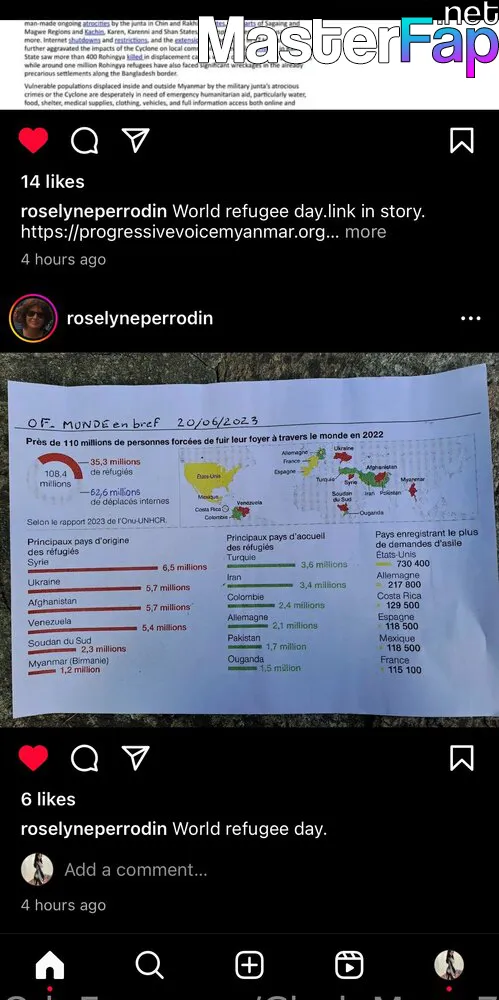 .net
MasterFap
man-made ongoing atrocities by the junta in Chin and Rakh
Magwe Regions and Kachin, Karen, Karenni and Shan States
more. Internet shutdowns and restrictions, and the
further aggravated the impacts of the Cyclone on local com
State saw more than 400 Rohingya killed in displacement
while around one million Rohingya refugees have also faced significant wreckages in the already
precarious settlements along the Bangladesh border.
Vulnerable populations displaced inside and outside Myanmar by the military junta's atrocious
crimes or the Cyclone are desperately in need of emergency humanitarian aid, particularly water,
food, shelter, medical supplies, clothing, vehicles, and full information access both online and
14 likes
roselyneperrodin World refugee day.link in story.
https://progressivevoicemyanmar.org... more
4 hours ago
roselyneperrodin
OF- MUNDE en bref 20/06/2023
Près de 110 millions de personnes forcées de fuir leur foyer à travers le monde en 2022
108,4
millions
35,3 millions
de réfugiés
62,6 millions
de déplacés internes
Selon le rapport 2023 de l'Onu-UNHCR.
États-Unis
Mexique
Costa Rica
Colombie
Venezuela
Allemagne
France
Espagne
Ukraine
Turquie
Syrie
Afghanistan
Iran
Pakistan
Myanmar
Soudan
du Sud
Ouganda
Principaux pays d'origine
des réfugiés
Syrie
6,5 millions
Ukraine
5,7 millions
Afghanistan
5,7 millions
Venezuela
5,4 millions
Soudan du Sud
2,3 millions
Myanmar (Birmanie)
1,2 million
Principaux pays d'accueil
des réfugiés
Turquie
3,6 millions
Iran
3,4 millions
Colombie
2,4 millions
Allemagne
2,1 millions
Pakistan
1,7 million
Ouganda
1,5 million
Pays enregistrant le plus
de demandes d'asile
États-Unis
730 400
Allemagne
217 800
Costa Rica
129 500
Espagne
118 500
Mexique
118 500
France
115 100
6 likes
roselyneperrodin World refugee day.
Add a comment...
4 hours ago